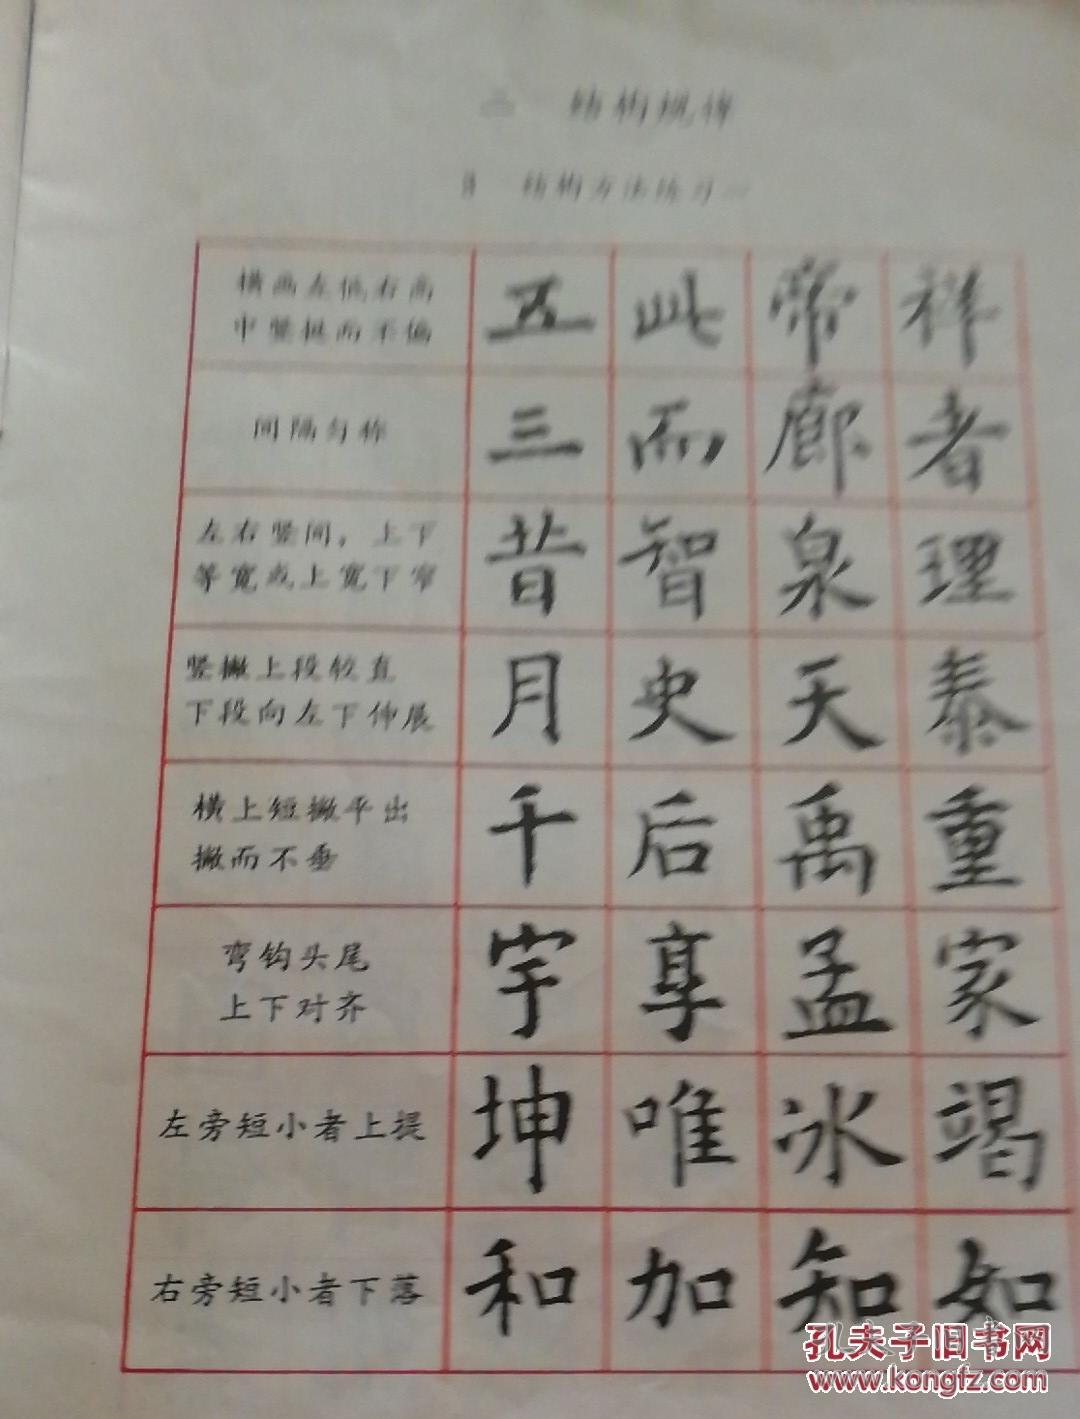 二 结构规律
结构方法练习一
横画左低右高
中竖挺而不偏
五 此 帝 祥
间隔匀称
三 而 廊 者
左右竖间，上下
等宽或上宽下窄
昔 智 泉 理
竖撇上段较直
下段向左下伸展
月 史 天 泰
横上短撇平出
撇而不垂
千 后 禹 重
弯钩头尾
上下对齐
宇 享 孟 家
左旁短小者上提
坤 唯 冰 竭
右旁短小者下落
和 加 知 如
孔夫子旧书网
www.kongfz.com